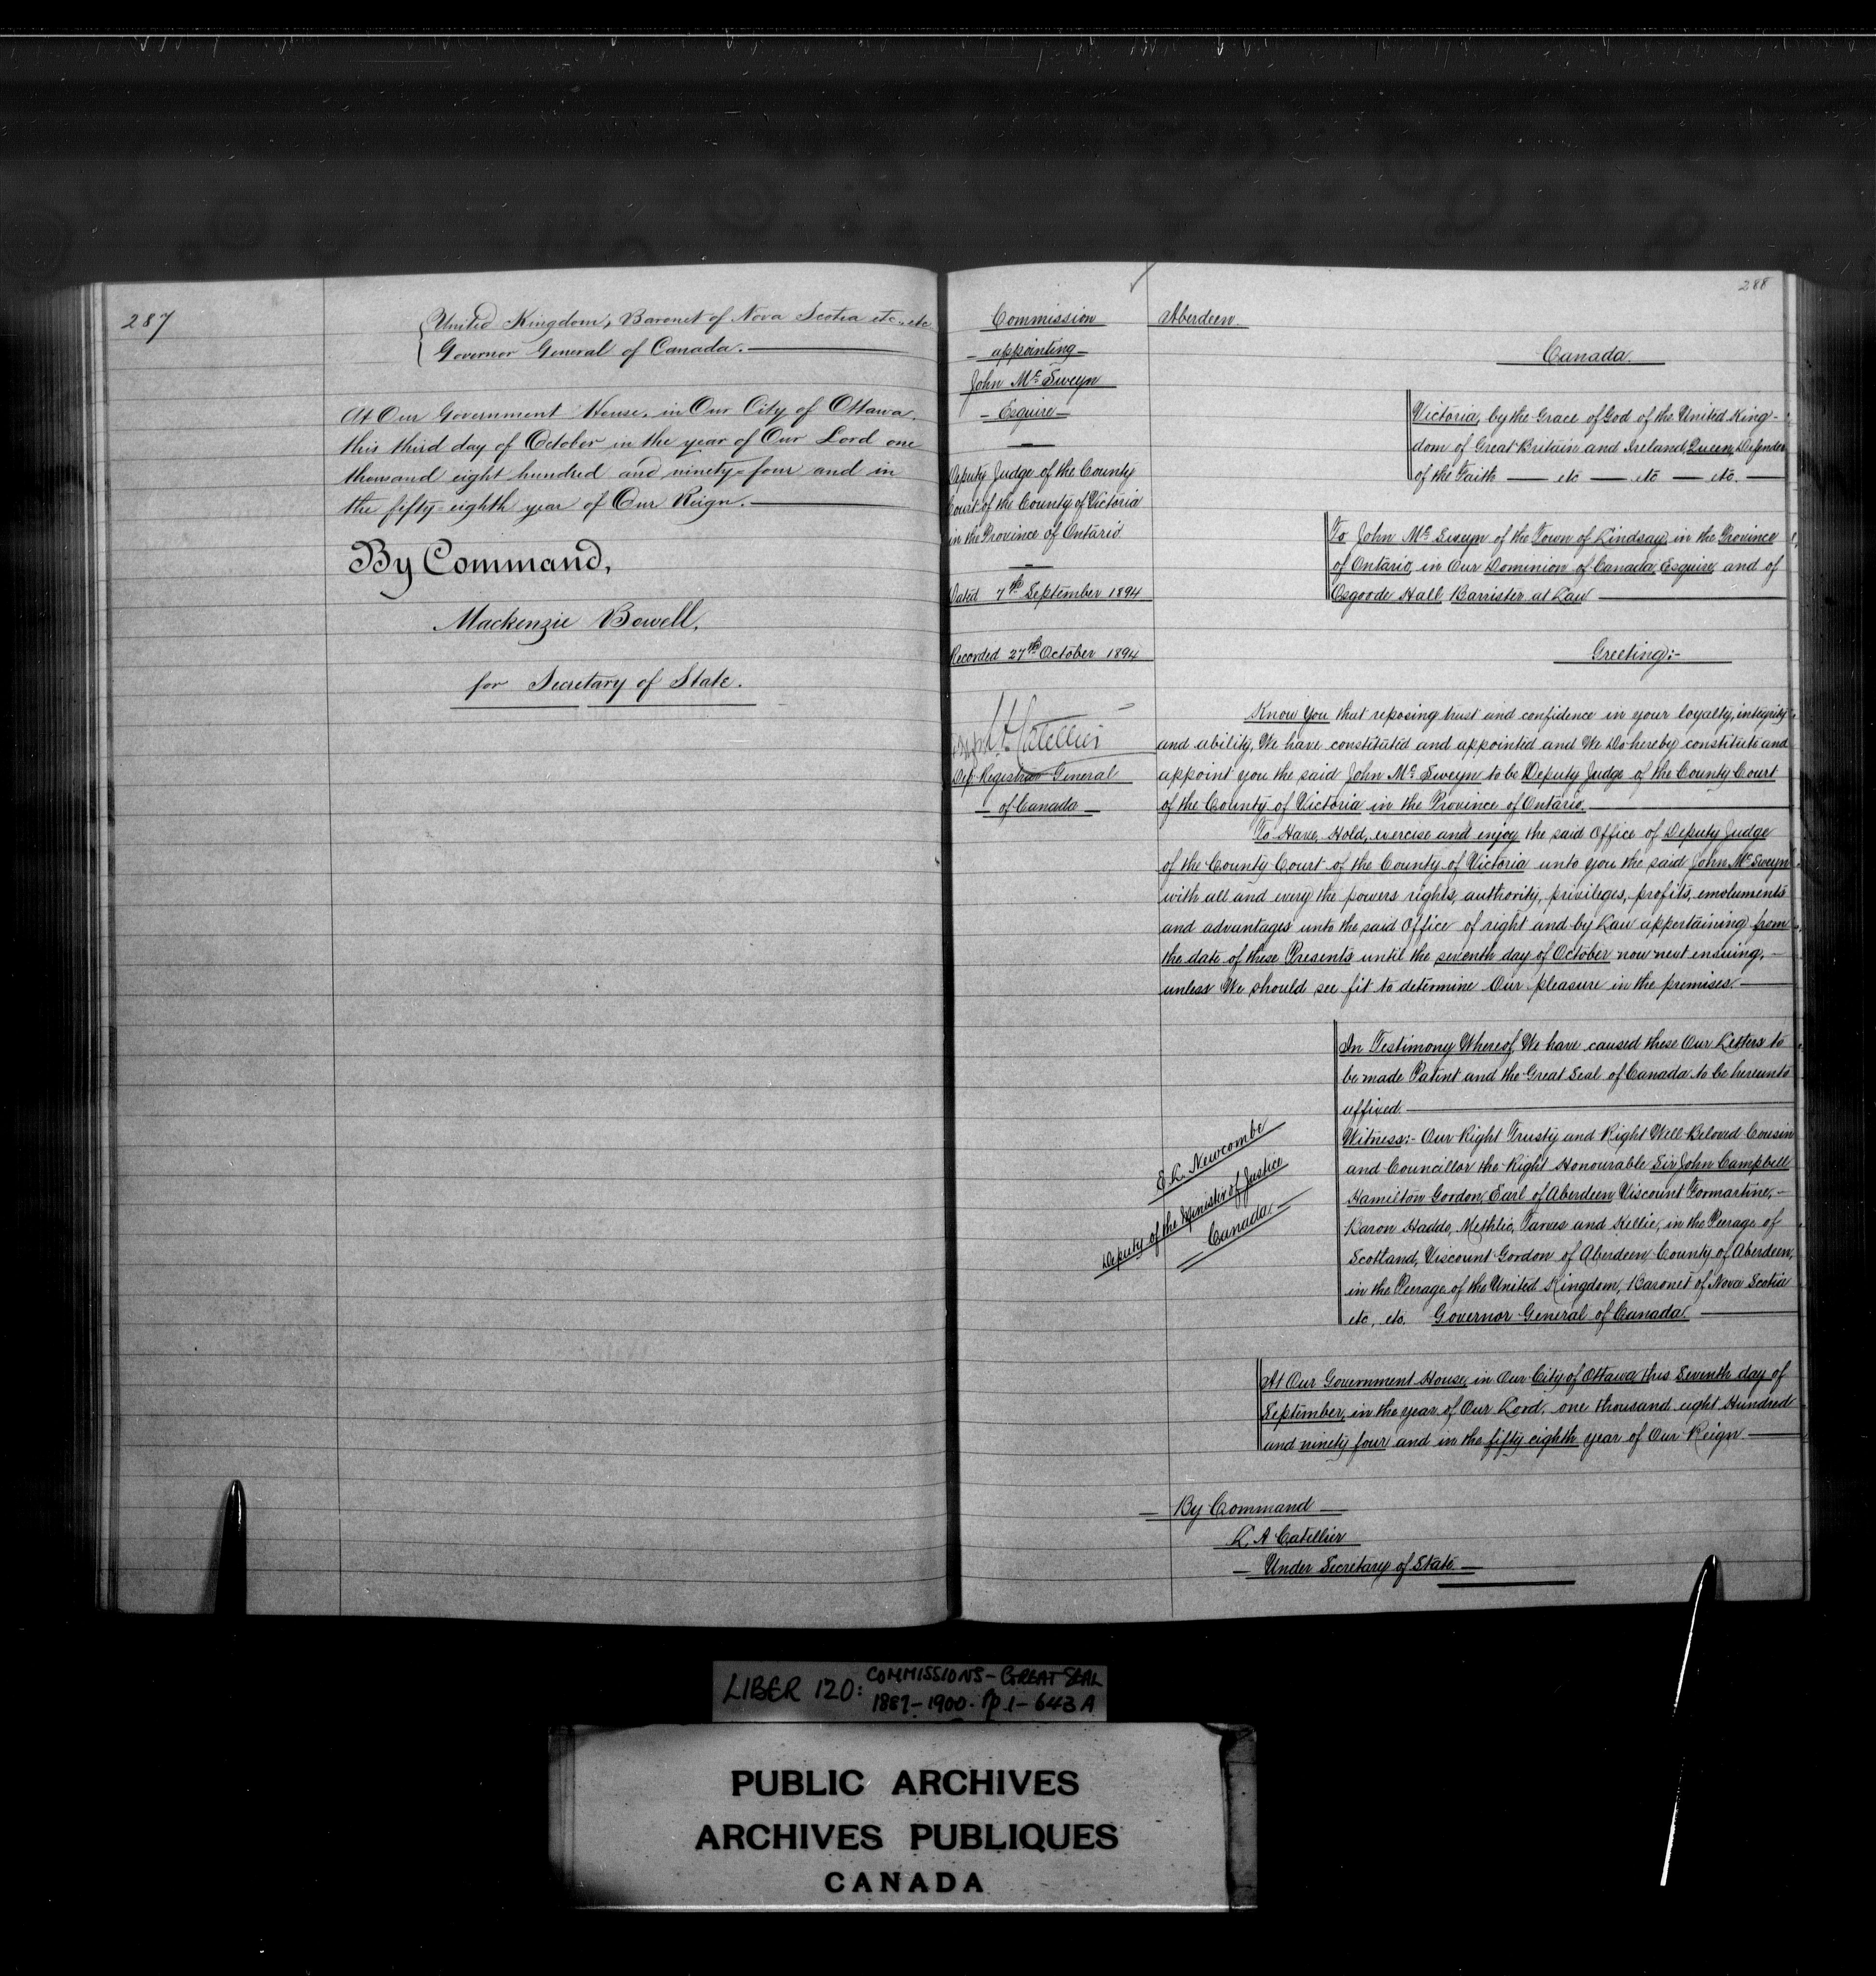 287
United Kingdom, Baronet of Nova Scotia etc, etc
Governor General of Canada.
At Our Government House, in Our City of Ottawa,
this third day of October in the year of Our Lord one
thousand eight hundred and ninety=four and in
the fifty=eighth year of Our Reign.
By Command,
Mackenzie Bowell,
for Secretary of State.
288
Commission
appointing
John Mc Sweyn
Esquire
Deputy Judge of the County
Court of the County of Victoria
in the Province of Ontario
Dated 7th September 1894
Recorded 27th October 1894
Catellier
Dep. Registrar General
of Canada
Aberdeen.
Canada.
Victoria, by the Grace of God of the United King-
dom of Great Britain and Ireland, Queen, Defender
of the Faith etc etc etc.
To John Mc Sweyn of the Town of Lindsay, in the Province
of Ontario, in Our Dominion of Canada, Esquire, and of
Osgoode Hall, Barrister at Law
Greeting:-
Know You that reposing trust and confidence in your loyalty, integrity
and ability, We have constituted and appointed and We Do hereby constitute and
appoint you the said John Mc Sweyn to be Deputy Judge of the County Court
of the County of Victoria in the Province of Ontario.
To Have, Hold, exercise and enjoy the said Office of Deputy Judge
of the County Court of the County of Victoria unto you the said John Mc Sweyn
with all and every the powers rights, authority, privileges, profits, emoluments
and advantages unto the said Office of right and by Law appertaining from
the date of these Presents until the seventh day of October now next ensuing,
unless We should see fit to determine Our pleasure in the premises.
In Testimony Whereof, We have caused these Our Letters to
be made Patent and the Great Seal of Canada to be hereunto
affixed.
Witness:- Our Right Trusty and Right Well-Beloved Cousin
and Councillor the Right Honourable Sir John Campbell
Hamilton Gordon, Earl of Aberdeen Viscount Formartine,
Baron Haddo, Methlic, Tarves and Kellie, in the Peerage of
Scotland, Viscount Gordon of Aberdeen, County of Aberdeen,
in the Peerage of the United Kingdom, Baronet of Nova Scotia
etc, etc. Governor General of Canada.
E. L. Newcombe
Deputy of the Minister of Justice
Canada
At Our Government House, in Our City of Ottawa this Seventh day of
September, in the year of Our Lord, one thousand eight Hundred
and ninety four and in the fifty eighth year of Our Reign
By Command
L. A Catellier
Under Secretary of State
LIBER 120: COMMISSIONS - GREAT SEAL
1887-1900. pp 1-643A
PUBLIC ARCHIVES
ARCHIVES PUBLIQUES
CANADA